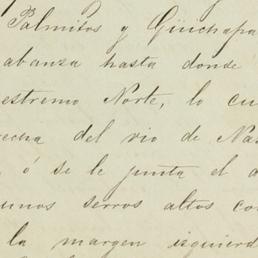 Palmitos y Güichapa
abanza hasta donde
estremo Norte, lo cu
recha del rio de Na
, ó se le junta el a
unos serros altos co
la margen izquierd